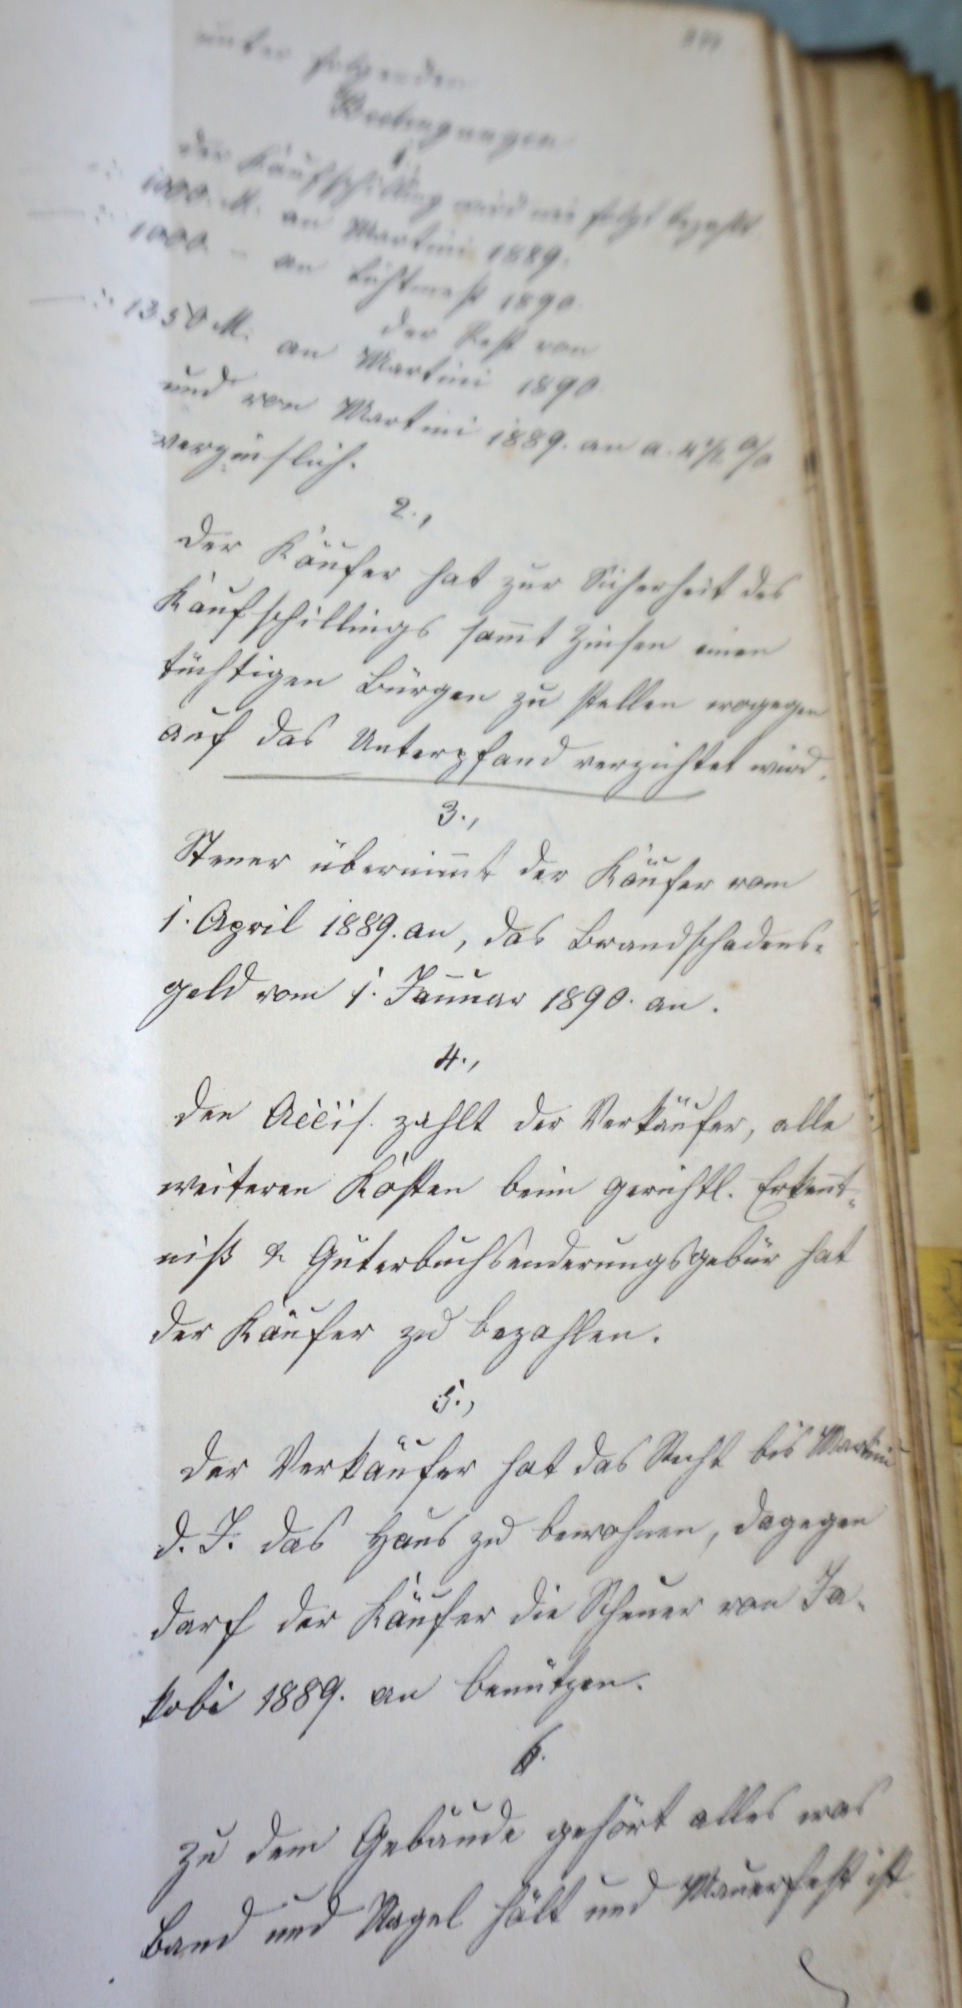 unter folgenden
Bedingungen
1.
der Kaufschilling wird wie folgt bezahlt
1000. M. an Martini 1889.
1000. – an Lichtmeß 1890.
der Rest von
1350 M. an Martini 1890
und von Martini 1889. an a. 4½ %
verzinslich.
2.,
Der Käufer hat zur Sicherheit des
Kaufschillings sam̅t Zinsen einen
tüchtigen Bürgen zu stellen wogegen
auf das Unterpfand verzichtet wird.
3.,
Steuer übernim̅t der Käufer vom
1. April 1889. an, das Brandschadens-
geld vom 1. Januar 1890. an.
4.,
Den Acciis. zahlt der Verkäufer, alle
weiteren Kosten beim gerichtl. Erken̅t-
niß & Güterbuchsenderungsgebür hat
der Käufer zu bezahlen.
5.,
Der Verkäufer hat das Recht bis Martini
d. J. das Haus zu bewohnen, dagegen
darf der Käufer die Scheuer von Ja-
kobi 1889. an benützen.
6.
Zu dem Gebäude gehört alles was
Band und Nagel hält und Mauerfest ist